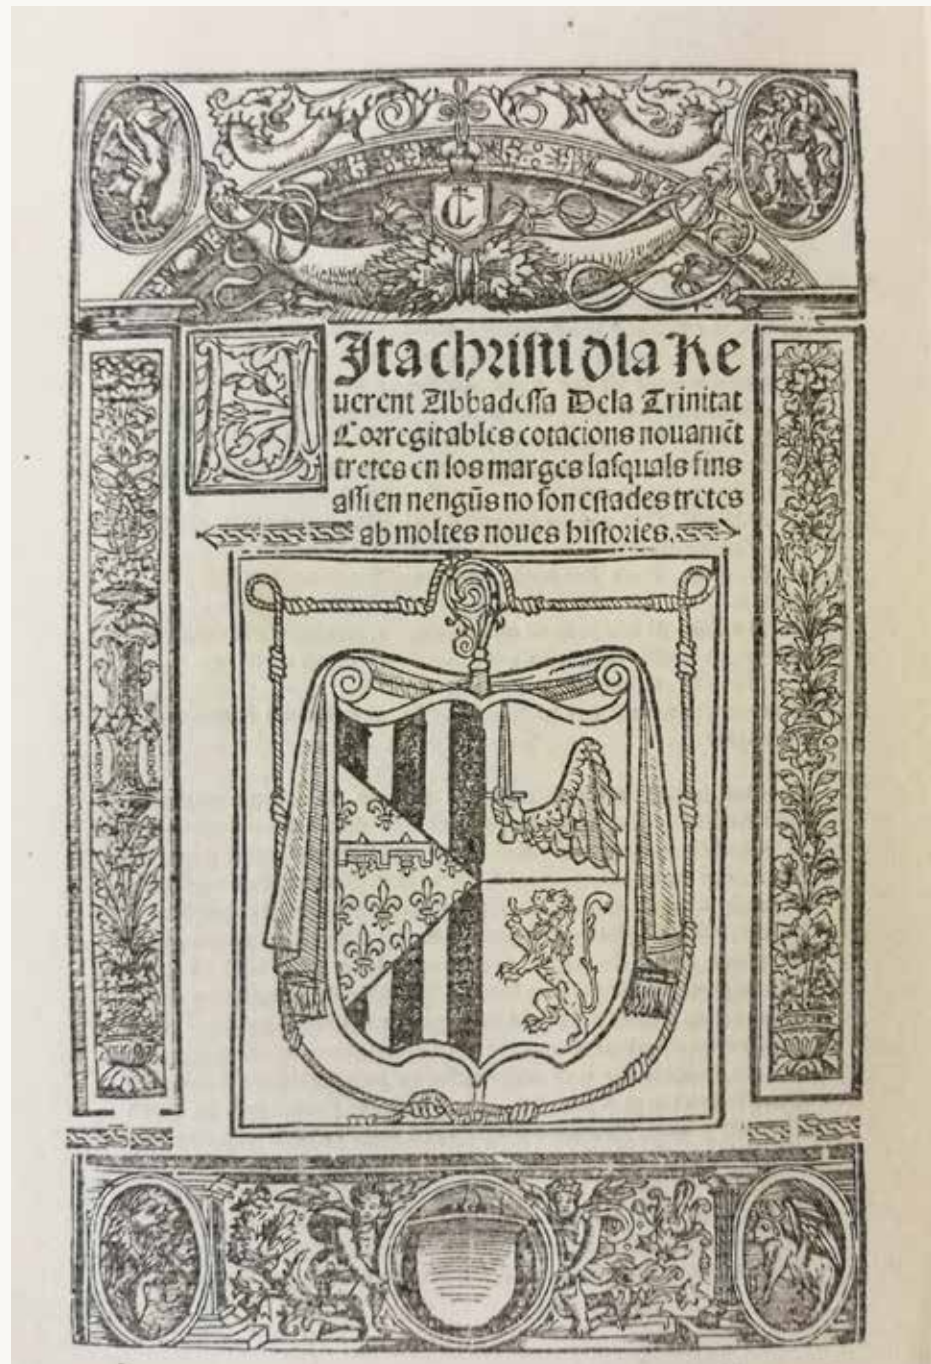 UIta chriſti dla Re
uerent Abbadeſſa Dela Trinitat
Corregitables cotacions nouamēt
tretes en los marges laſquals fins
aſſi en nengūs no ſon eſtades tretes
ab moltes noues hiſtories.